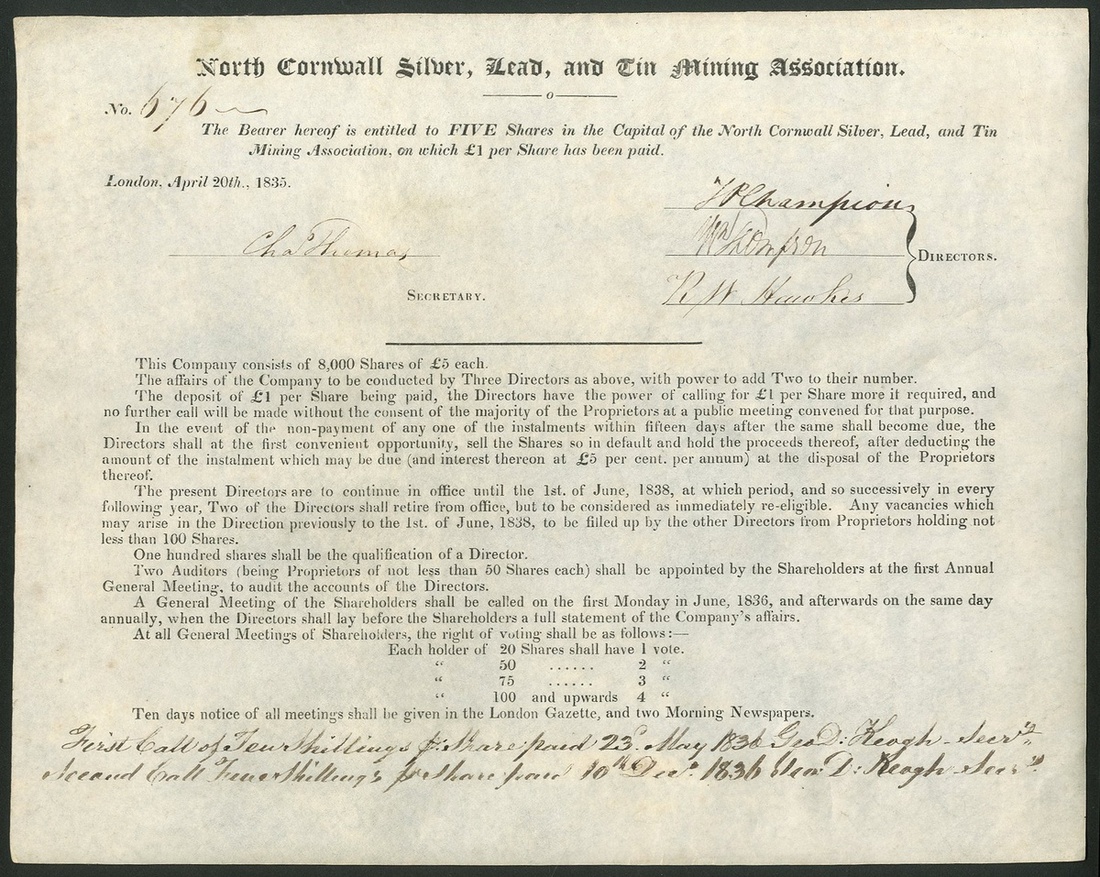 North Cornwall Silver, Lead, and Tin Mining Association.
No. 676
The Bearer hereof is entitled to FIVE Shares in the Capital of the North Cornwall Silver, Lead, and Tin
Mining Association, on which £1 per Share has been paid.
London, April 20th., 1835.
Champion
Chas Thomas
DIRECTORS.
R W Hawkes
SECRETARY.
This Company consists of 8,000 Shares of £5 each.
The affairs of the Company to be conducted by Three Directors as above, with power to add Two to their number.
The deposit of £1 per Share being paid, the Directors have the power of calling for £1 per Share more if required, and
no further call will be made without the consent of the majority of the Proprietors at a public meeting convened for that purpose.
In the event of the non-payment of any one of the instalments within fifteen days after the same shall become due, the
Directors shall at the first convenient opportunity, sell the Shares so in default and hold the proceeds thereof, after deducting the
amount of the instalment which may be due (and interest thereon at £5 per cent. per annum) at the disposal of the Proprietors
thereof.
The present Directors are to continue in office until the 1st. of June, 1838, at which period, and so successively in every
following year, Two of the Directors shall retire from office, but to be considered as immediately re-eligible. Any vacancies which
may arise in the Direction previously to the 1st. of June, 1838, to be filled up by the other Directors from Proprietors holding not
less than 100 Shares.
One hundred shares shall be the qualification of a Director.
Two Auditors (being Proprietors of not less than 50 Shares each) shall be appointed by the Shareholders at the first Annual
General Meeting, to audit the accounts of the Directors.
A General Meeting of the Shareholders shall be called on the first Monday in June, 1836, and afterwards on the same day
annually, when the Directors shall lay before the Shareholders a full statement of the Company's affairs.
At all General Meetings of Shareholders, the right of voting shall be as follows:—
Each holder of 20 Shares shall have 1 vote.
“ 50 ...... 2 “
“ 75 ...... 3 “
“ 100 and upwards 4 “
Ten days notice of all meetings shall be given in the London Gazette, and two Morning Newspapers.
First Call of Ten Shillings p Share paid 23d May 1836 Geo D: Keogh - Secry
Second Call Five Shillings p Share paid 10th Decr 1836 Geo: D: Keogh - Secry